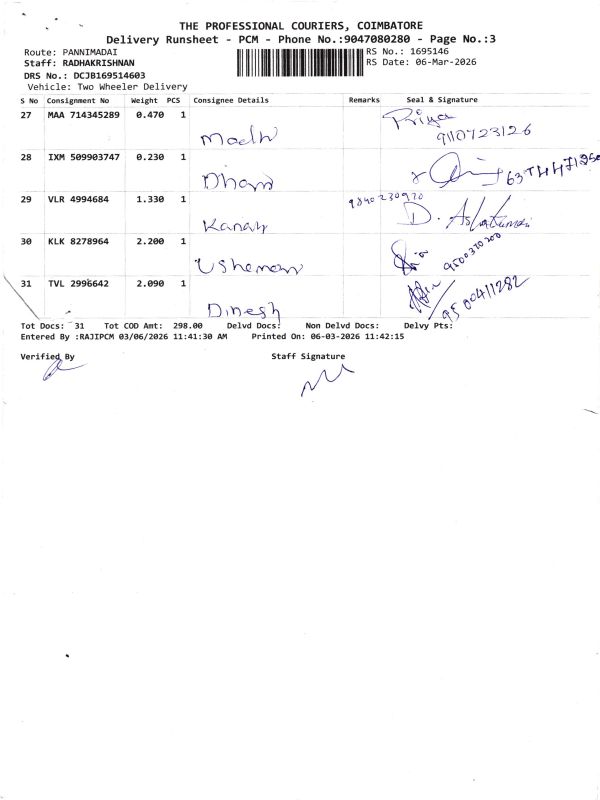 THE PROFESSIONAL COURIERS, COIMBATORE
Delivery Runsheet - PCM - Phone No.:9047080280 - Page No.:3
Route: PANNIMADAI
RS No.: 1695146
Staff: RADHAKRISHNAN
RS Date: 06-Mar-2026
DRS No.: DCJB169514603
Vehicle: Two Wheeler Delivery
S No Consignment No Weight PCS Consignee Details Remarks Seal & Signature
27 MAA 714345289 0.470 1
Priya
9110723126
28 IXM 509903747 0.230 1
29 VLR 4994684 1.330 1
9840230920
D.
30 KLK 8278964 2.200 1
9500320200
31 TVL 2996642 2.090 1
Dinesh
9500411282
Tot Docs: 31 Tot COD Amt: 298.00 Delvd Docs: Non Delvd Docs: Delvy Pts:
Entered By :RAJIPCM 03/06/2026 11:41:30 AM Printed On: 06-03-2026 11:42:15
Verified By Staff Signature